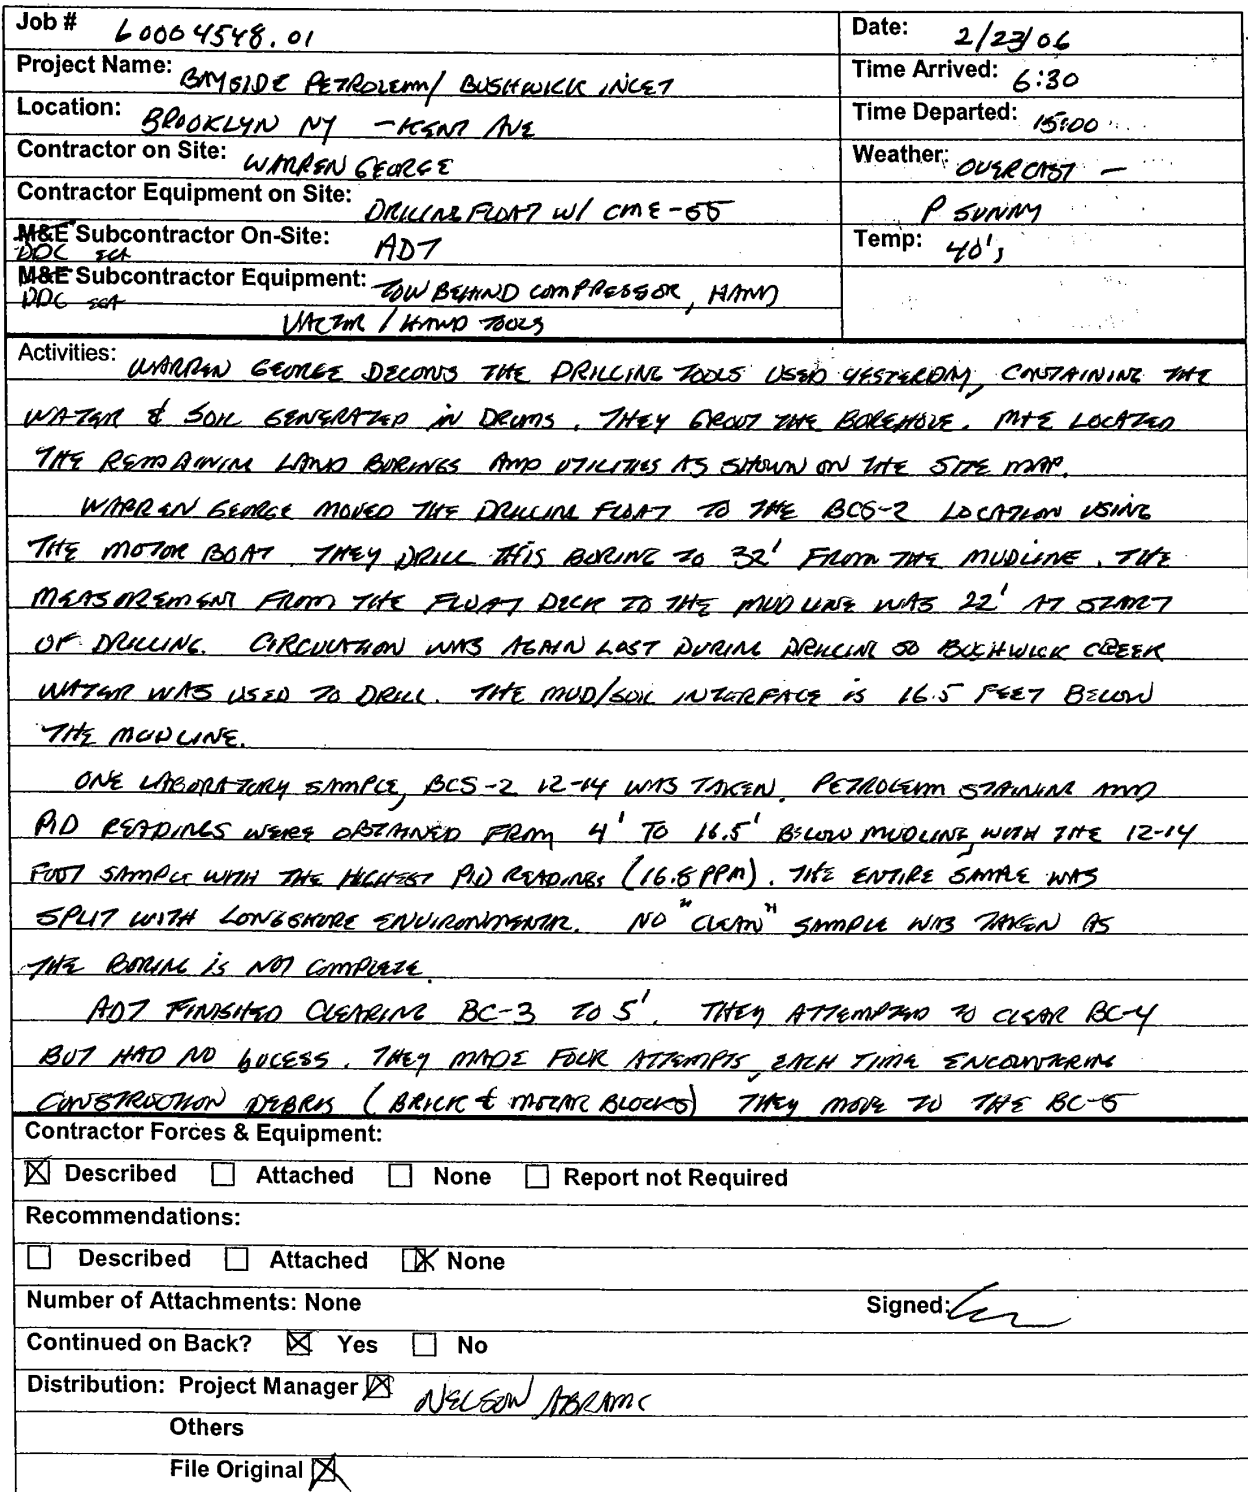 Job # 60004548.01
Date: 2/23/06
Project Name: BAYSIDE PETROLEUM/ BUSHWICK INLET
Time Arrived: 6:30
Location: BROOKLYN NY - KENT AVE
Time Departed: 15:00
Contractor on Site: WARREN GEORGE
Weather: OVERCAST -
Contractor Equipment on Site: DRILLING FLOAT W/ CME-55
P SUNNY
M&E Subcontractor On-Site: ADT
DDC
Temp: 40's
M&E Subcontractor Equipment: TOW BEHIND COMPRESSOR, HAND
DDC
VACTOR / HAND TOOLS
Activities: WARREN GEORGE DECONS THE DRILLING TOOLS USED YESTERDAY, CONTAINING THE
WATER & SOIL GENERATED IN DRUMS. THEY GROUT THE BOREHOLE. M+E LOCATED
THE REMAINING LAND BORINGS AND UTILITIES AS SHOWN ON THE SITE MAP.
WARREN GEORGE MOVED THE DRILLING FLOAT TO THE BCS-2 LOCATION USING
THE MOTOR BOAT. THEY DRILL THIS BORING TO 32' FROM THE MUDLINE. THE
MEASUREMENT FROM THE FLOAT DECK TO THE MUD LINE WAS 22' AT START
OF DRILLING. CIRCULATION WAS AGAIN LOST DURING DRILLING SO BUSHWICK CREEK
WATER WAS USED TO DRILL. THE MUD/SOIL INTERFACE IS 16.5 FEET BELOW
THE MUDLINE.
ONE LABORATORY SAMPLE, BCS-2 12-14 WAS TAKEN. PETROLEUM STAINING AND
PID READINGS WERE OBTAINED FROM 4' TO 16.5' BELOW MUDLINE, WITH THE 12-14
FOOT SAMPLE WITH THE HIGHEST PID READINGS (16.8 PPM). THE ENTIRE SAMPLE WAS
SPLIT WITH LONGSHORE ENVIRONMENTAL. NO "CLEAN" SAMPLE WAS TAKEN AS
THE BORING IS NOT COMPLETE.
ADT FINISHED CLEARING BC-3 TO 5'. THEY ATTEMPTED TO CLEAR BC-4
BUT HAD NO SUCESS. THEY MADE FOUR ATTEMPTS, EACH TIME ENCOUNTERING
CONSTRUCTION DEBRIS (BRICK & MOTAR BLOCKS) THEY MOVE TO THE BC-5
Contractor Forces & Equipment:
Described Attached None Report not Required
Recommendations:
Described Attached None
Number of Attachments: None
Signed:
Continued on Back? Yes No
Distribution: Project Manager NELSON ABRAMS
Others
File Original